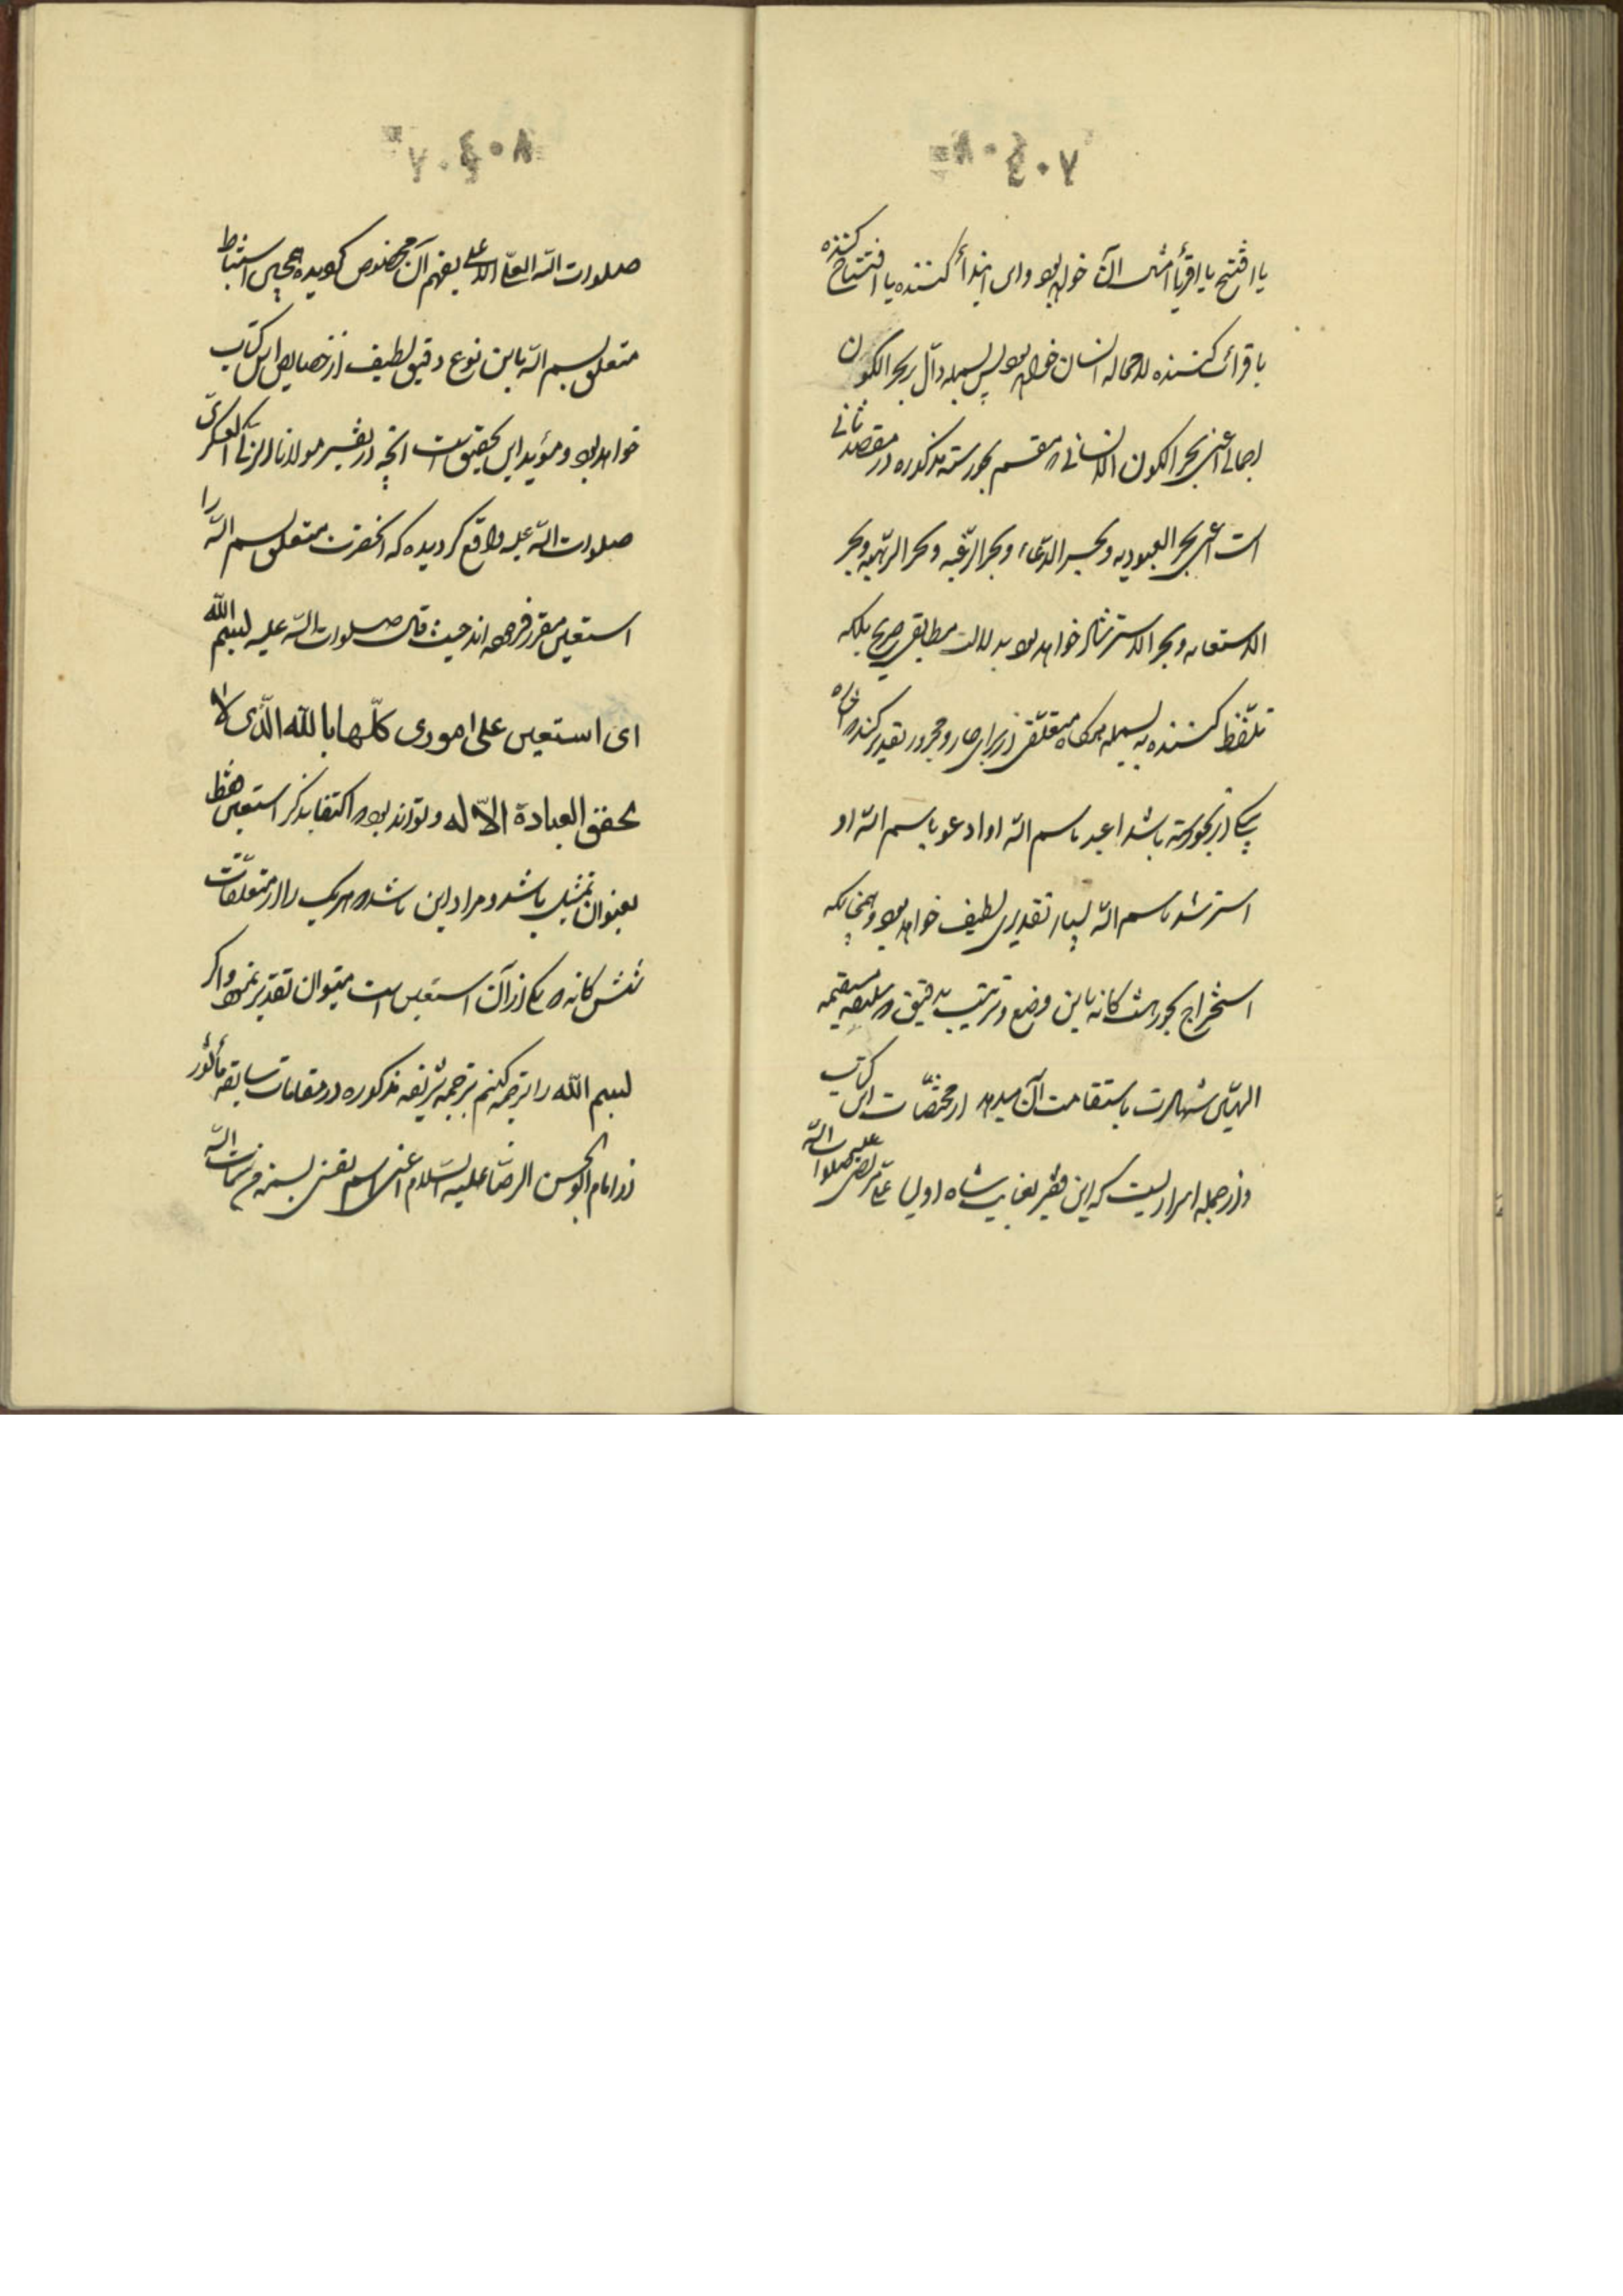 ٤٠٧
یا افتتح یا اقرأ و امثال آن خواهد بود و این ابتدأ کننده یا افتتاح کننده
یا قرائت کننده لا محاله انسان خواهد بود پس بسمله دالّ بر بحر الکون
اجمالی اعنی بحر الکون الانسانی و مقسم بحور ستّه مذکوره در مقصد ثانی
است اعنی بحر العبودیه و بحر الدّعاء و بحر الرّغبه و بحر الرّهبه و بحر
الاستعانه و بحر الاسترشاد خواهد بود بدلالت مطابقی صریح بلکه
تلفّظ کننده به بسمله هرگاه متعلّقی از برای جار و مجرور تقدیر کند که
یکی از بحور سته باشد اعبد باسم الله او ادعو باسم الله او
استرشد باسم الله بسیار تقدیری لطیف خواهد بود و همچنانکه
استخراج بحور هشت کانه باین وضع و ترتیب دقیق که سلیقه مستقیمه
الهیّین شهادت باستقامت آن میدهد از مختصّات این کتاب
و از جمله اسراریست که این فقیر بعنایت شاه اولیا علی مرتضی علیه صلوات الله
٤٠٨
صلوات الله العلی الاعلی بفهم آن مخصوص گردیده همچنین استنباط
متعلق بسم الله باین نوع دقیق لطیف از خصایص این کتاب
خواهد بود و مؤید این تحقیق است آنچه در تفسیر مولانا الزکی العسکری
صلوات الله علیه واقع گردیده که آنحضرت متعلق بسم الله را
استعین مقرر فرموده اند حیث قال صلوات الله علیه بسم الله
ای استعین علی اموری کلّها بالله الّذی لا
یحقق العبادة الاّ له و تواند بود که اکتفا بذکر استعین فقط
بعنوان تمثیل باشد و مراد این باشد که هر یک را از متعلّقات
شش کانه که یکی از آن استعین است میتوان تقدیر نمود و اگر
بسم الله را ترجمه کنیم بترجمه شریفه مذکوره در مقامات سابقه مأثور
از امام ابوالحسن الرضا علیه السّلام اعنی اسم نفسی بسمة من سمات الله